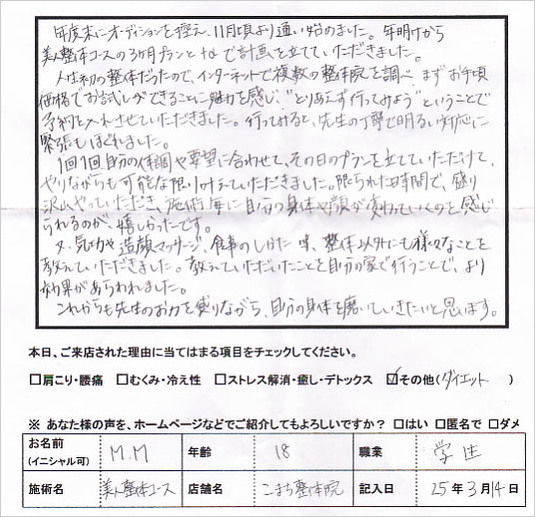 年度末にオーディションを控え、11月頃より通い始めました。年明けから
美人整体コースの3ヶ月プランとtaで計画を立てていただきました。
人生初の整体だったので、インターネットで複数の整体院を調べ、まずお手頃
価格でお試しができることに魅力を感じ、"とりあえず行ってみよう"ということで
予約を入れさせていただきました。行ってみると、先生の丁寧で明るい対応に
緊張もほぐれました。
1回1回自分の体調や要望に合わせて、その日のプランを立てていただけて、
やりながらも可能な限り叶えていただきました。限られた時間で、盛り
沢山やっていただき、施術毎に自分の身体や顔が変わっていくのを感じ
られるのが、嬉しかったです。
又、気功や造顔マッサージ、食事のしかた等、整体以外にも様々なことを
教えていただきました。教えていただいたことを自分の家で行うことで、より
効果があらわれました。
これからも先生のお力を借りながら、自分の身体を磨いていきたいと思います。
本日、ご来店された理由に当てはまる項目をチェックしてください。
□肩こり・腰痛 □むくみ・冷え性 □ストレス解消・癒し・デトックス ☑その他(ダイエット )
※ あなた様の声を、ホームページなどでご紹介してもよろしいですか？ □はい □匿名で □ダメ
お名前 (イニシャル可) M.M 年齢 18 職業 学生
施術名 美人整体コース 店舗名 こまち整体院 記入日 25年3月14日